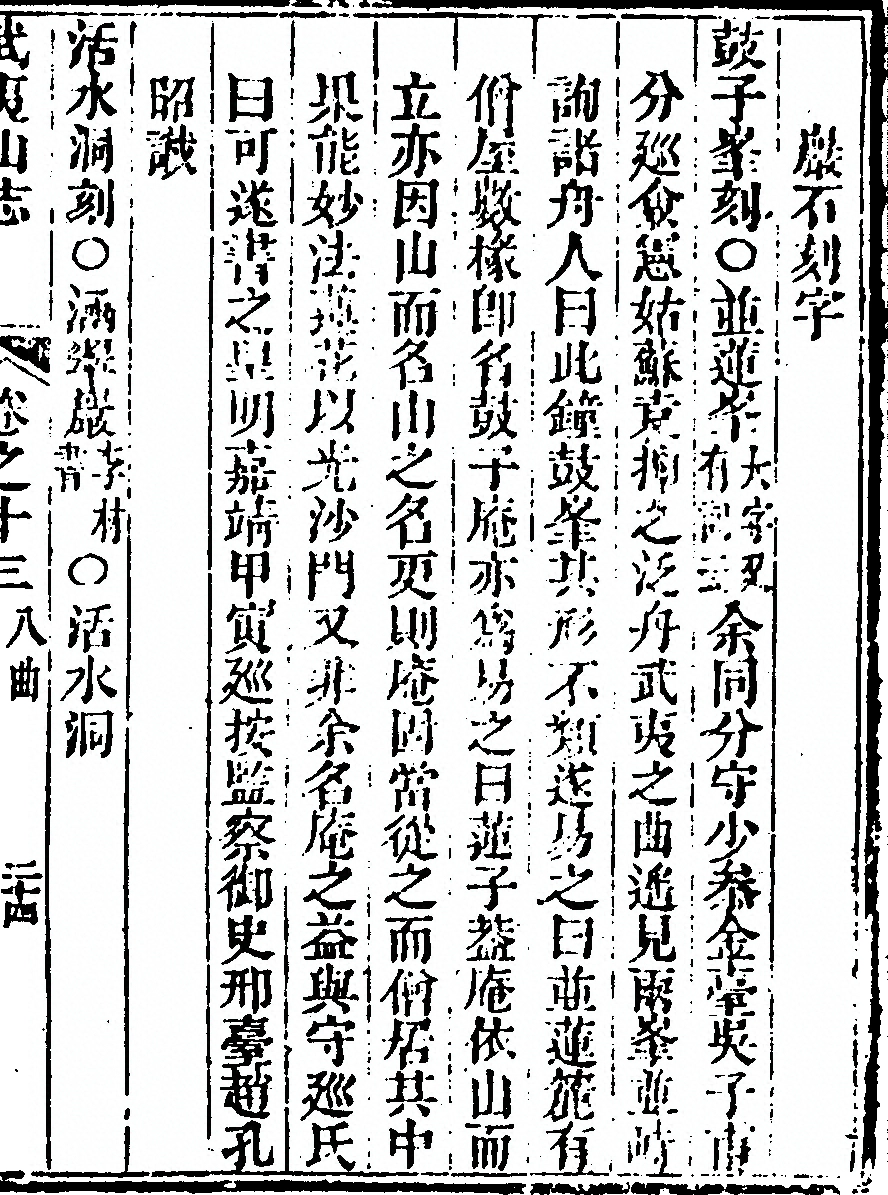 巖石刻字
鼓子峯刻〇並蓮峯大字又有記云余同分守少參金臺吳子南
分廵僉憲姑蘇袁之泛舟武夷之曲遙見兩峯並峙
詢諸舟人曰此鐘鼓峯其形不類遂易之曰並蓮麓有
僧屋數椽卽名鼓子庵亦爲易之曰蓮子葢庵依山而
立亦因山而名山之名更則庵固當從之而僧居其中
果能妙法蓮花以光沙門又非余名庵之益與守廵氏
曰可遂書之皇明嘉靖甲寅廵按監察御史邢臺趙孔
昭識
活水洞刻〇涵翠巖李材書〇活水洞
武夷山志 卷之十三 八曲 二十四